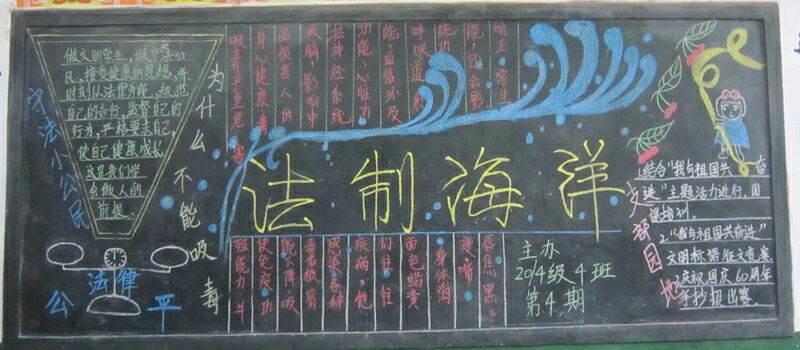 守法小公民
做文明学生，做守法公
民，接受健康的思想，并
时刻从法律为线，规范
自己的言行，监督自己的
行为，严格要求自己，
使自己健康成长，
这是我们学
会做人的
前提。
公 法律 平
为什么不能吸毒
吸毒严重危害
身心健康，毒
品损害人的
大脑，影响中
枢神经系统
功能，心脏功
能，血管环及
呼吸道系
统功
能，还会影
响正常生
法制海洋
感焦黑。
身体消
面色蜡黄
们往往
疾病，他
成染各种
毒者极易
能下降，吸
使免疫功
殖能力，并
主办
2014级4班
第4期
支部园地
1.结合“我与祖国共奋
进”主题活力进行，团
课培训。
2.“我与祖国共奋进”
文明标语征文竞赛
3.庆祝国庆60周年
手抄报出赛